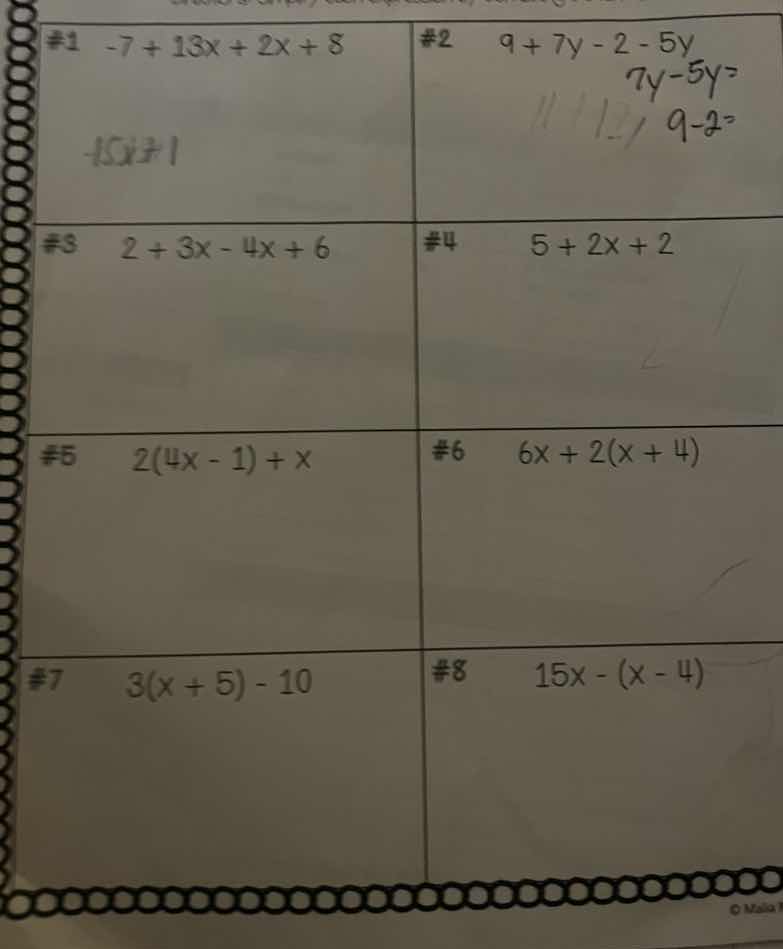 #1 -7 + 13x + 2x + 8
#2 9 + 7y - 2 - 5y
7y-5y=
9-2=
#3 2 + 3x - 4x + 6
#4 5 + 2x + 2
#5 2(4x - 1) + x
#6 6x + 2(x + 4)
#7 3(x + 5) - 10
#8 15x - (x - 4)
© Malia